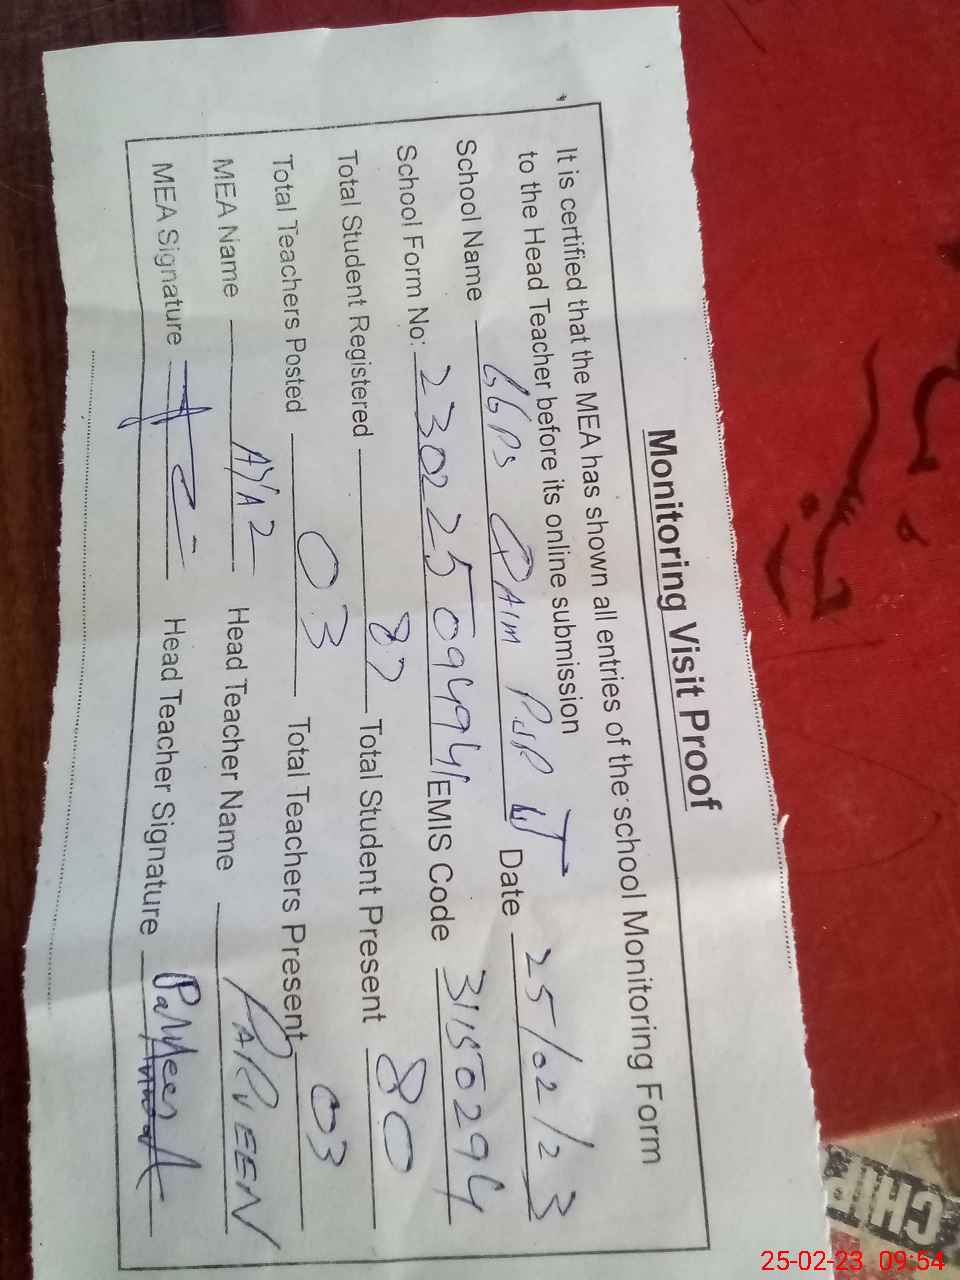 Monitoring Visit Proof
It is certified that the MEA has shown all entries of the school Monitoring Form
to the Head Teacher before its online submission
School Name GGPS QAIM PUR W Date 25/02/23
School Form No: 230225094994 EMIS Code 31150294
Total Student Registered 87 Total Student Present 80
Total Teachers Posted 03 Total Teachers Present 03
MEA Name AYAZ Head Teacher Name PARVEEN
MEA Signature Head Teacher Signature Parveen
CHIP
25-02-23 09:54